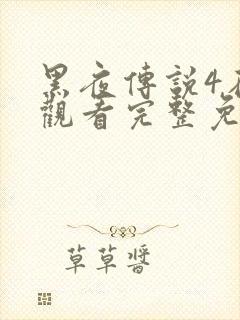 黑夜傳說4
觀看完整免
草草醬